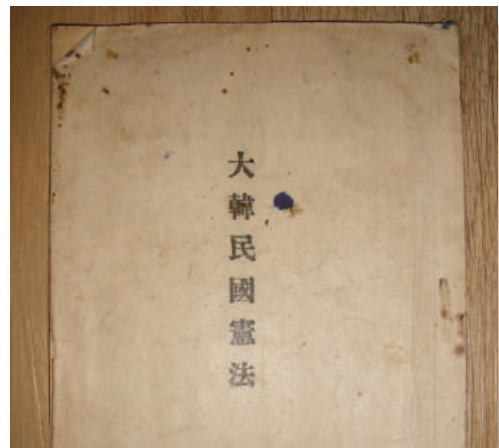 大韓民國憲法